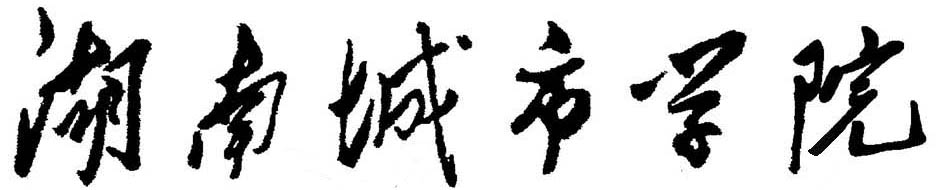 湖南城市学院